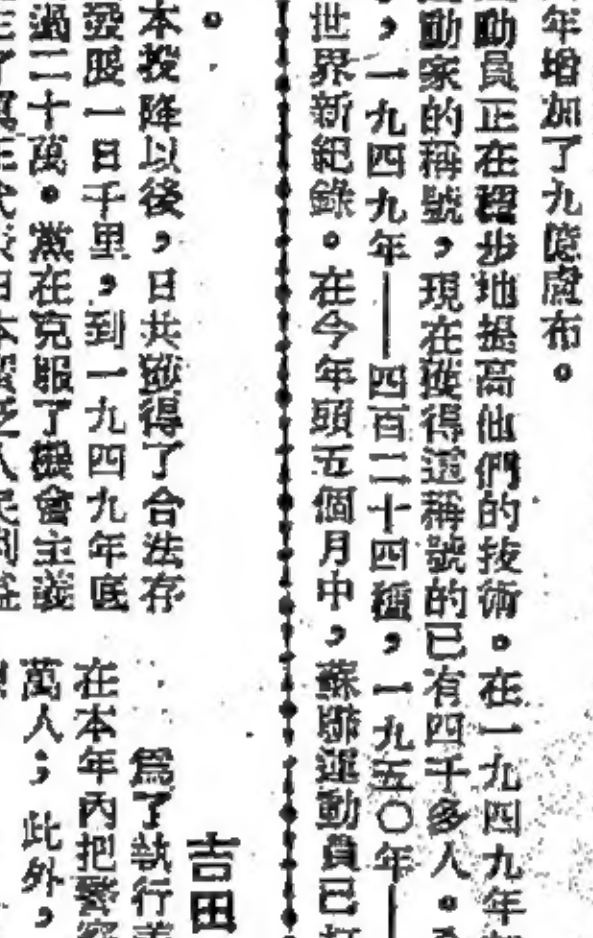 年增加了九億㕑布。
動員正在穩步地提高他們的技術。在一九四九年
動家的稱號,現在獲得這稱號的已有四千多人。
,一九四九年——四百二十四種,一九五〇年——
世界新紀錄。在今年頭五個月中,蘇聯運動員已打
。
本投降以後,日共獲得了合法存
發展一日千里,到一九四九年底
過二十萬。黨在克服了機會主義
吉田
爲了執行
在本年內把警察
萬人;此外,